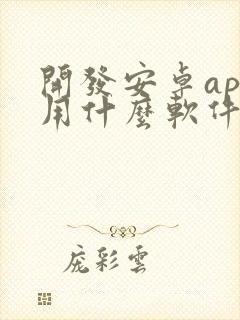 開發安卓ap
用什麼軟件
龐彩雲